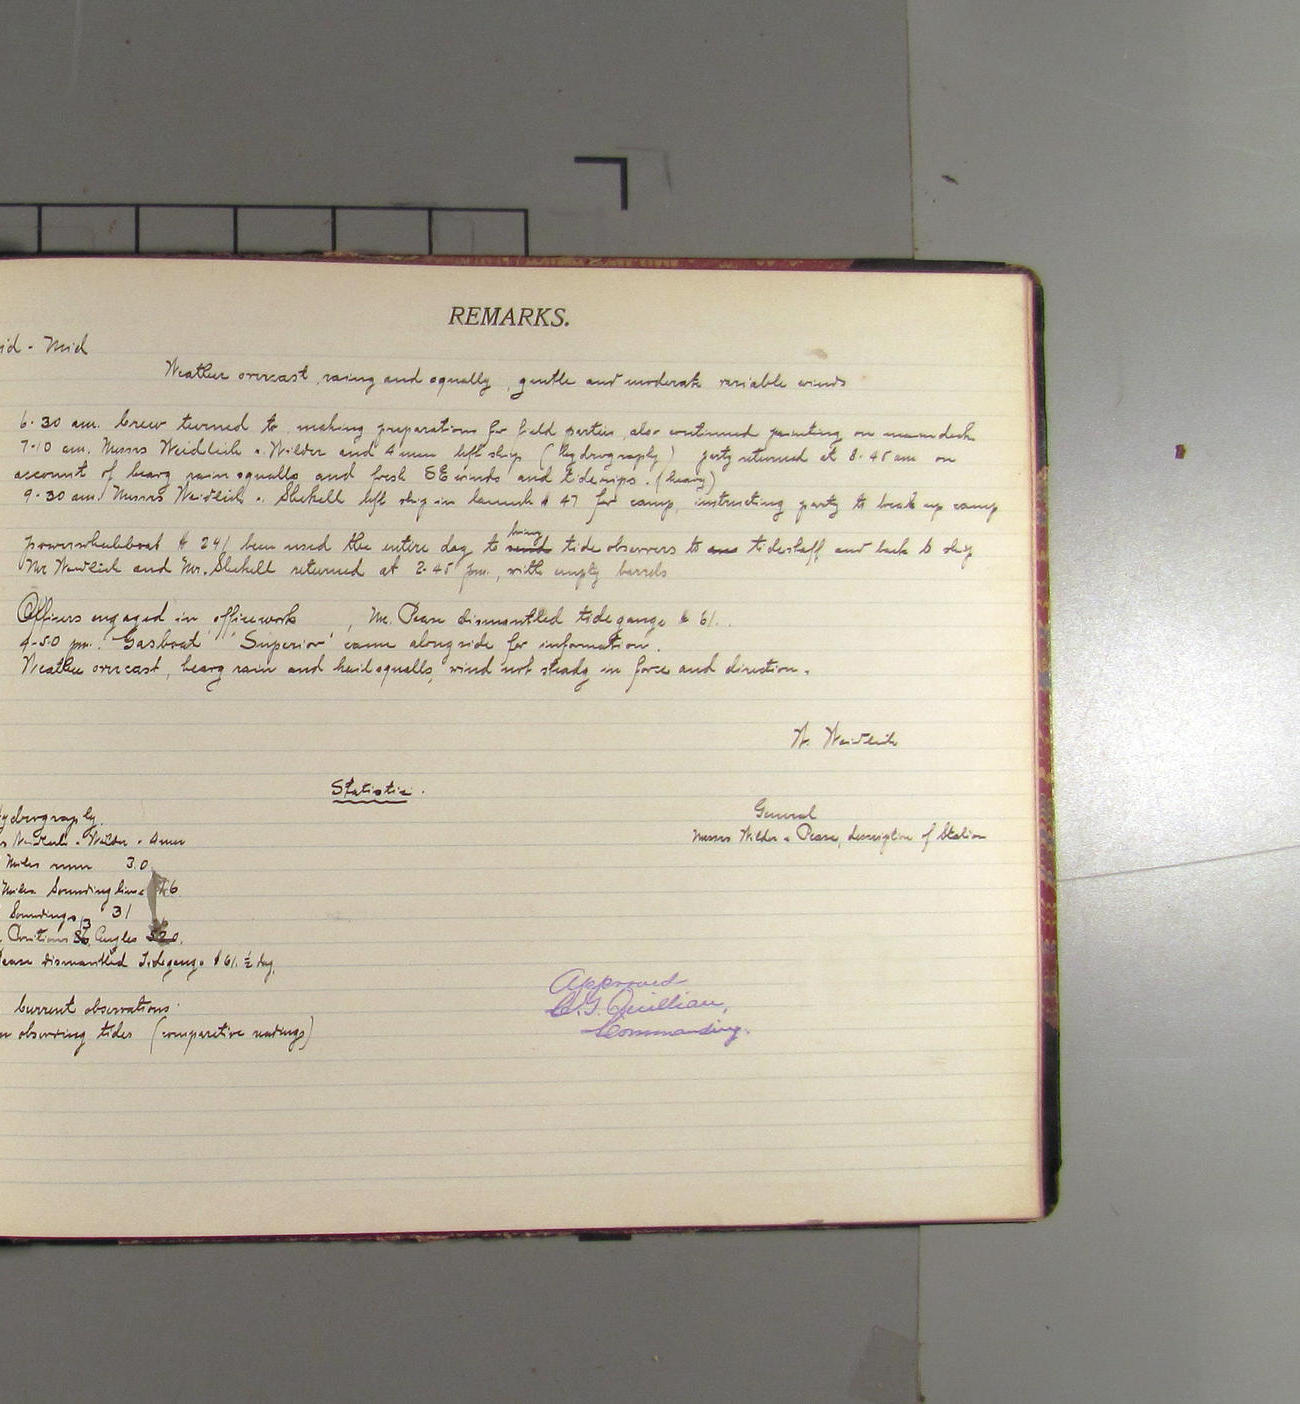 REMARKS.
id - Mid
Weather overcast, raing and squally, gentle and moderate variable winds
6-30 am. Crew turned to making preparations for field parties, also continued painting on maindeck
7-10 am. Messrs Weidlich & Wilder and 4 men left ship (Hydrography) party returned at 8-45 am on
account of heavy rain squalls and fresh SE winds and tiderips. (heavy)
9-30 am. Messrs Weidlich & Shekell left ship in launch # 47 for camp, instructing party to break up camp
powerwhaleboat # 241 been used the entire day to bring send tide observers to and tidestaff and back to ship
Mr Weidlich and Mr. Shekell returned at 2-45 pm., with empty barrels
Officers engaged in officework, Mr. Pease dismantled tidegauge # 61.
4-50 pm. Gasboat "Superior" came alongside for information.
Weather overcast, heavy rain and hail squalls, wind not steady in force and direction.
W. Weidlich
Statistic.
ydrography.
s Weidlich & Wilder & 4 men
Miles run 3.0
Miles Soundingline 6
Soundings 31
Positions 13 Angles
Pease dismantled Tidegauge # 61. ½ day.
Current observations
observing tides (comparative readings)
General
Messrs Wilder & Pease, description of Station
Approved
Quillian,
Commanding.